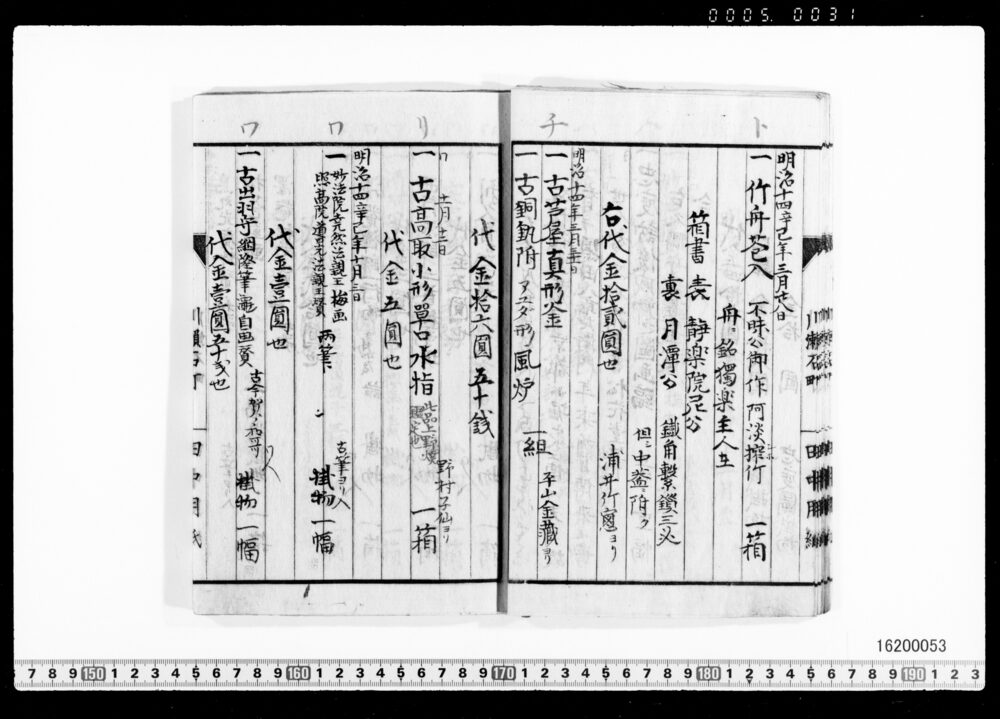 0005.0031
ト
明治十四辛巳年三月廿八日
一竹舟花入 不昧公御作 阿淡擢竹 一箱
舟ニ銘 獨樂主人在
箱書 表 静楽院尼公
裏 月潭公 鐵角繋鎖三必
但シ中蓋附ク
右代金拾貳圓也 浦井竹窓ヨリ
明治十四年三月三十日
チ
一古芦屋真形釜
一古銅 附 形風炉 一組 平山金藏ヨリ
代金拾六圓五十銭
リ
十一月十二日
一古高取小形單口水指 野村子仙ヨリ 一箱
代金五圓也
明治十四辛巳年十月三日
ワ
一妙法院尭然法親王梅画
照高院道晃法親王賛 両筆 古筆ヨリ入 掛物一幅
代金壹圓也
ワ
一古出羽守綱隆筆 自画賛 掛物一幅
代金壹圓五十戔也
川瀬石町
田中用紙
16200053
7 8 9 150 1 2 3 4 5 6 7 8 9 160 1 2 3 4 5 6 7 8 9 170 1 2 3 4 5 6 7 8 9 180 1 2 3 4 5 6 7 8 9 190 1 2 3